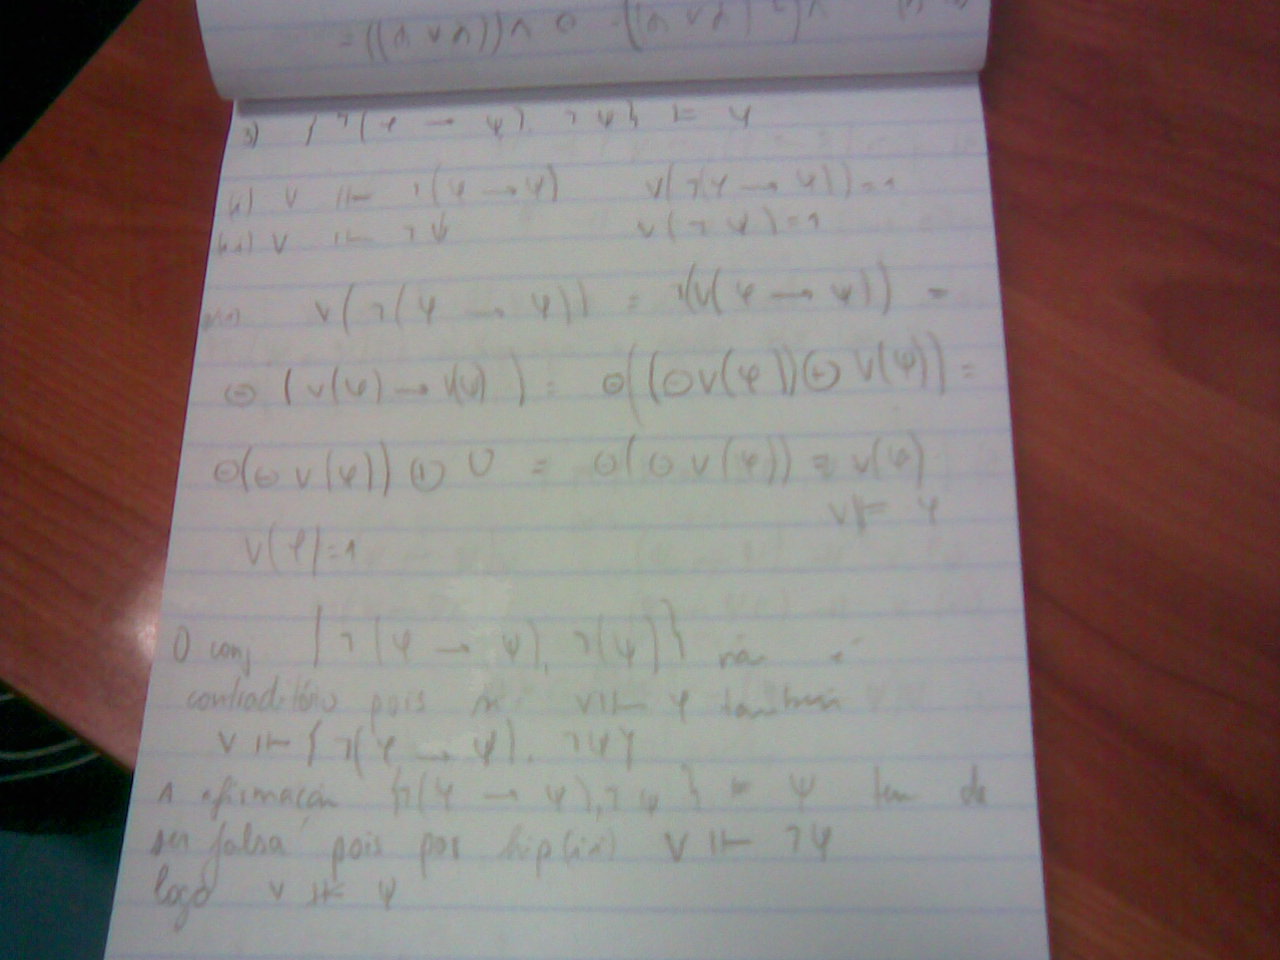 3) { ¬(φ → ψ), ¬ψ} ⊨ φ
(i) v ⊩ ¬(φ → ψ) v(¬(φ → ψ)) = 1
(ii) v ⊩ ¬ψ v(¬ψ) = 1
v(¬(φ → ψ)) = ¬(v(φ → ψ)) =
⊖ (v(φ) → v(ψ)) = ⊖((⊖v(φ)) ⊕ v(ψ)) =
⊖(⊖ v(φ)) ⊕ 0 = ⊖(⊖ v(φ)) = v(φ)
v ⊩ φ
v(φ) = 1
O conj {¬(φ → ψ), ¬(ψ)} não é
contraditório pois se v ⊩ φ também
v ⊩ {¬(φ → ψ), ¬ψ}
A afirmação {¬(φ → ψ), ¬ψ} ⊨ ψ tem de
ser falsa pois por hip(ii) v ⊩ ¬ψ
logo v ⊮ ψ